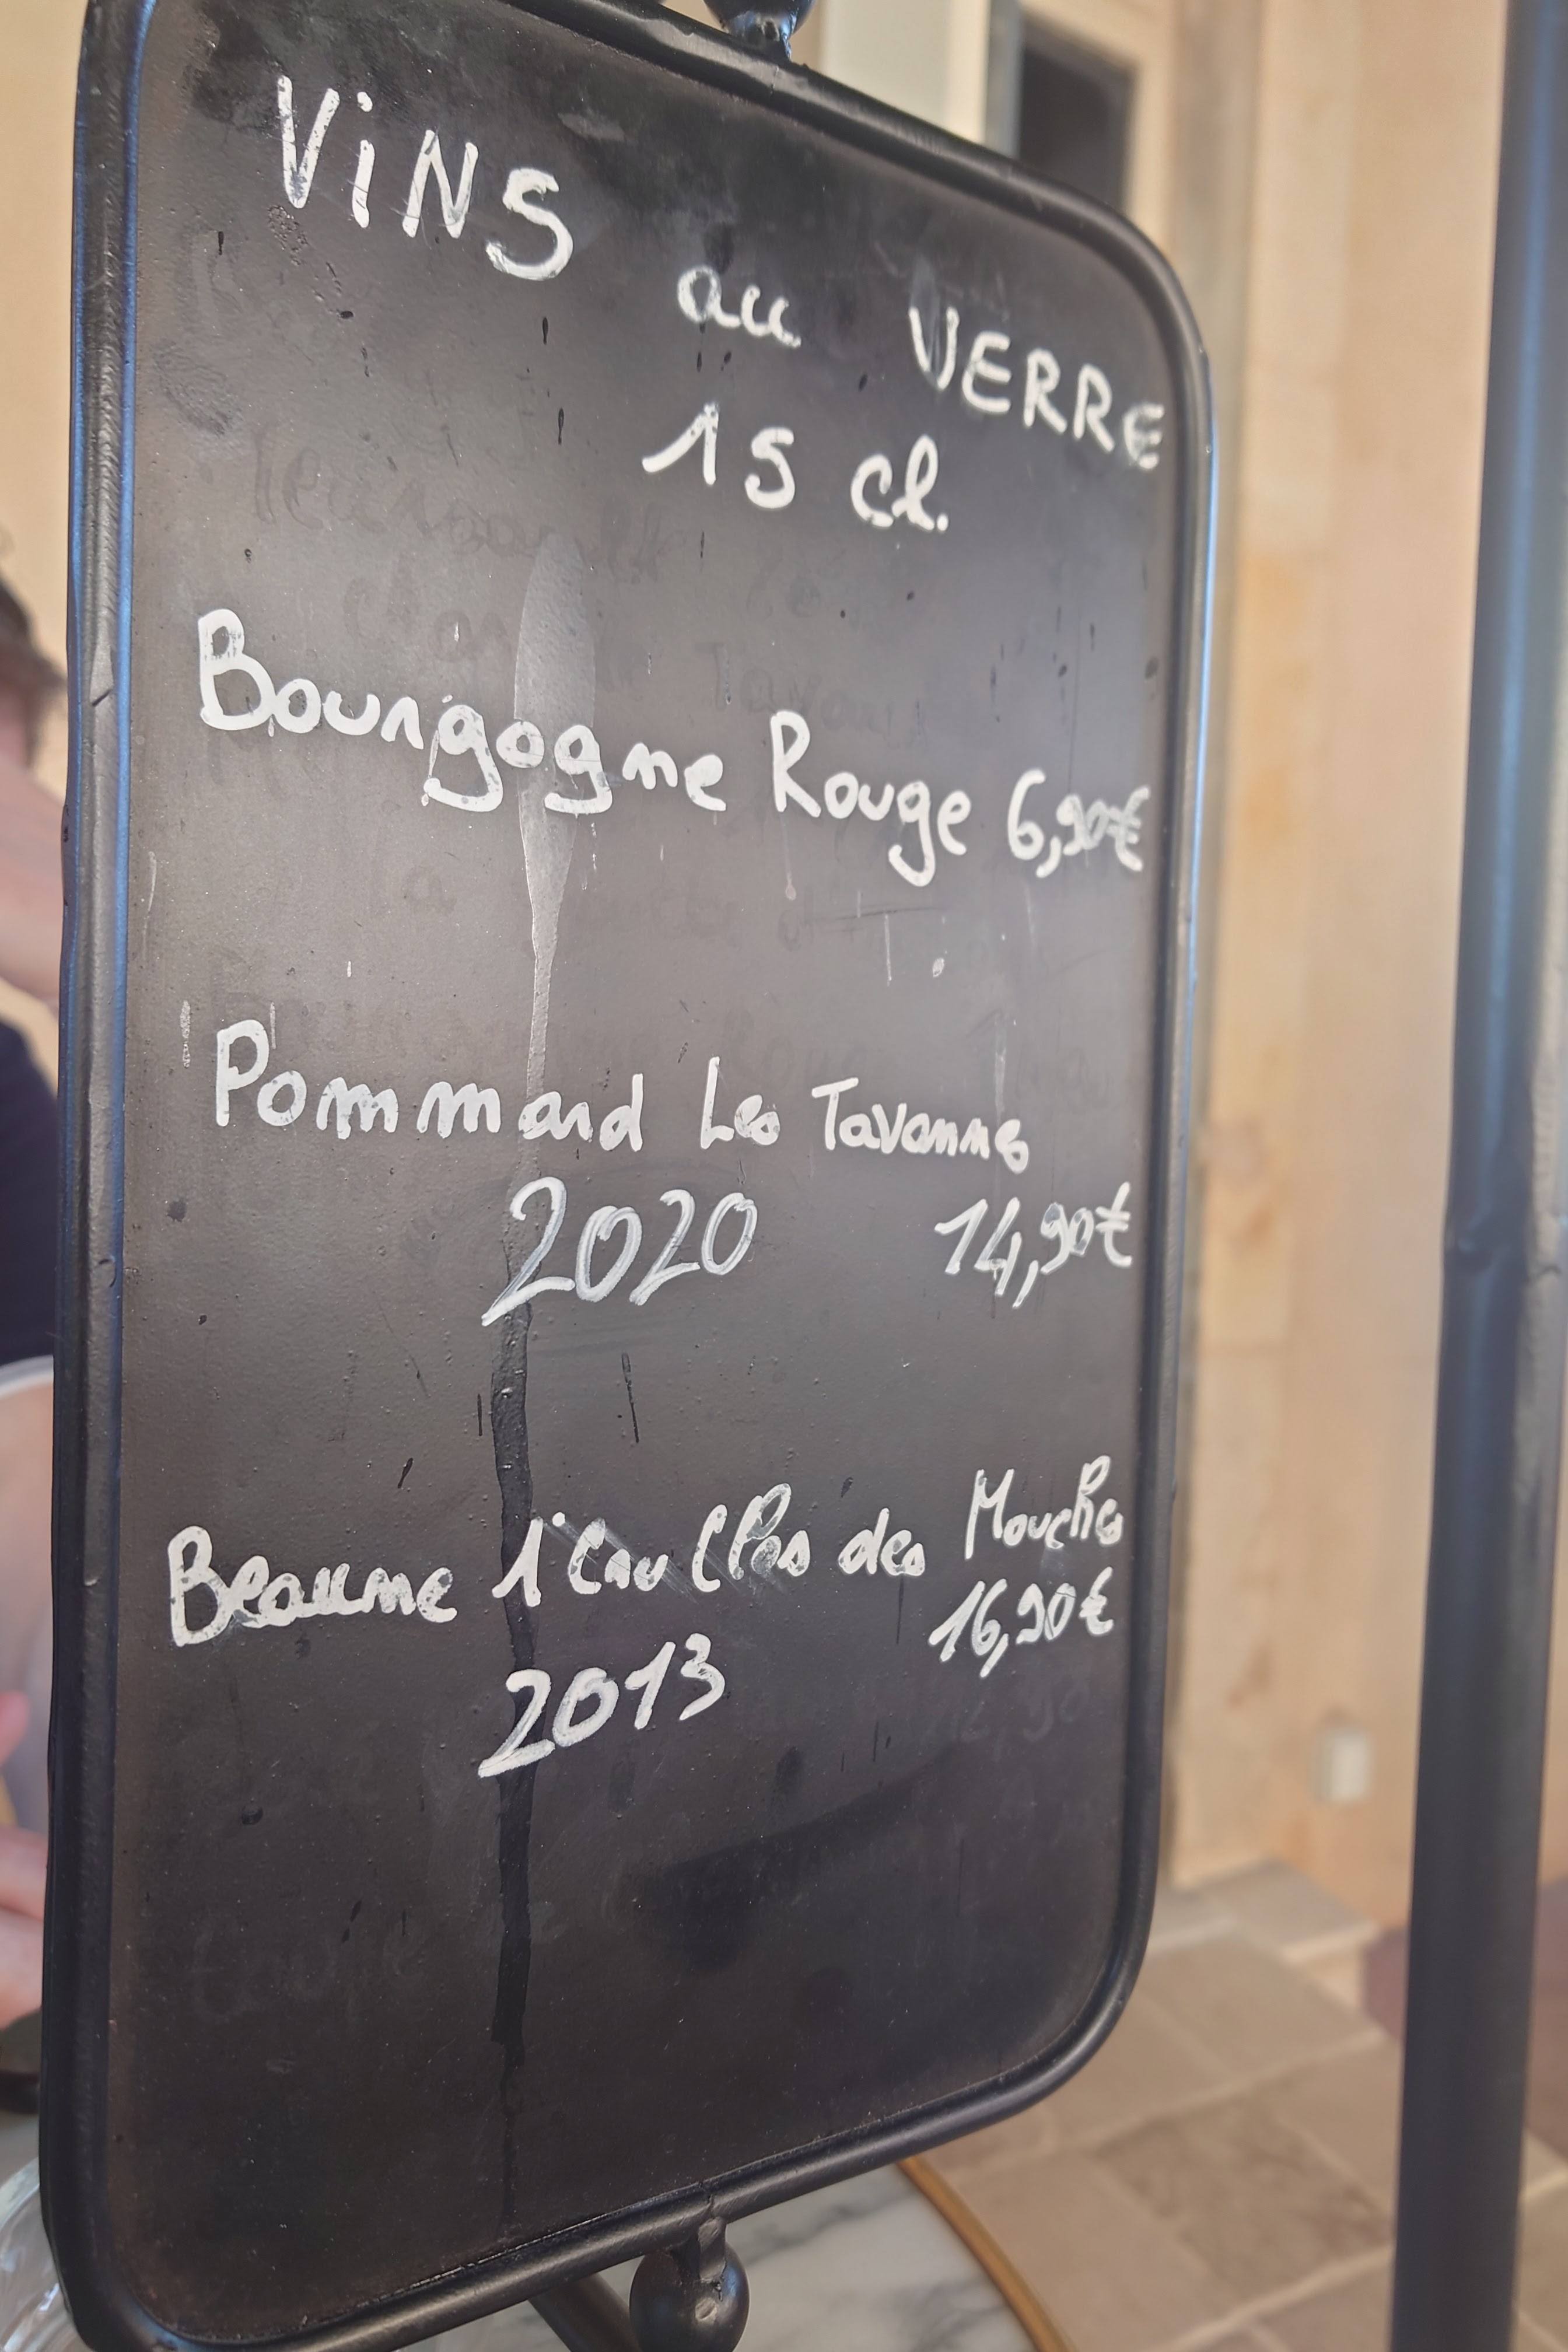 ViNS au VERRE
15 cl.
Bourgogne Rouge 6,90€
Pommard Les Tavannes
2020 14,90€
Beaune 1er Cru Clos des Mouches
2013 16,90€